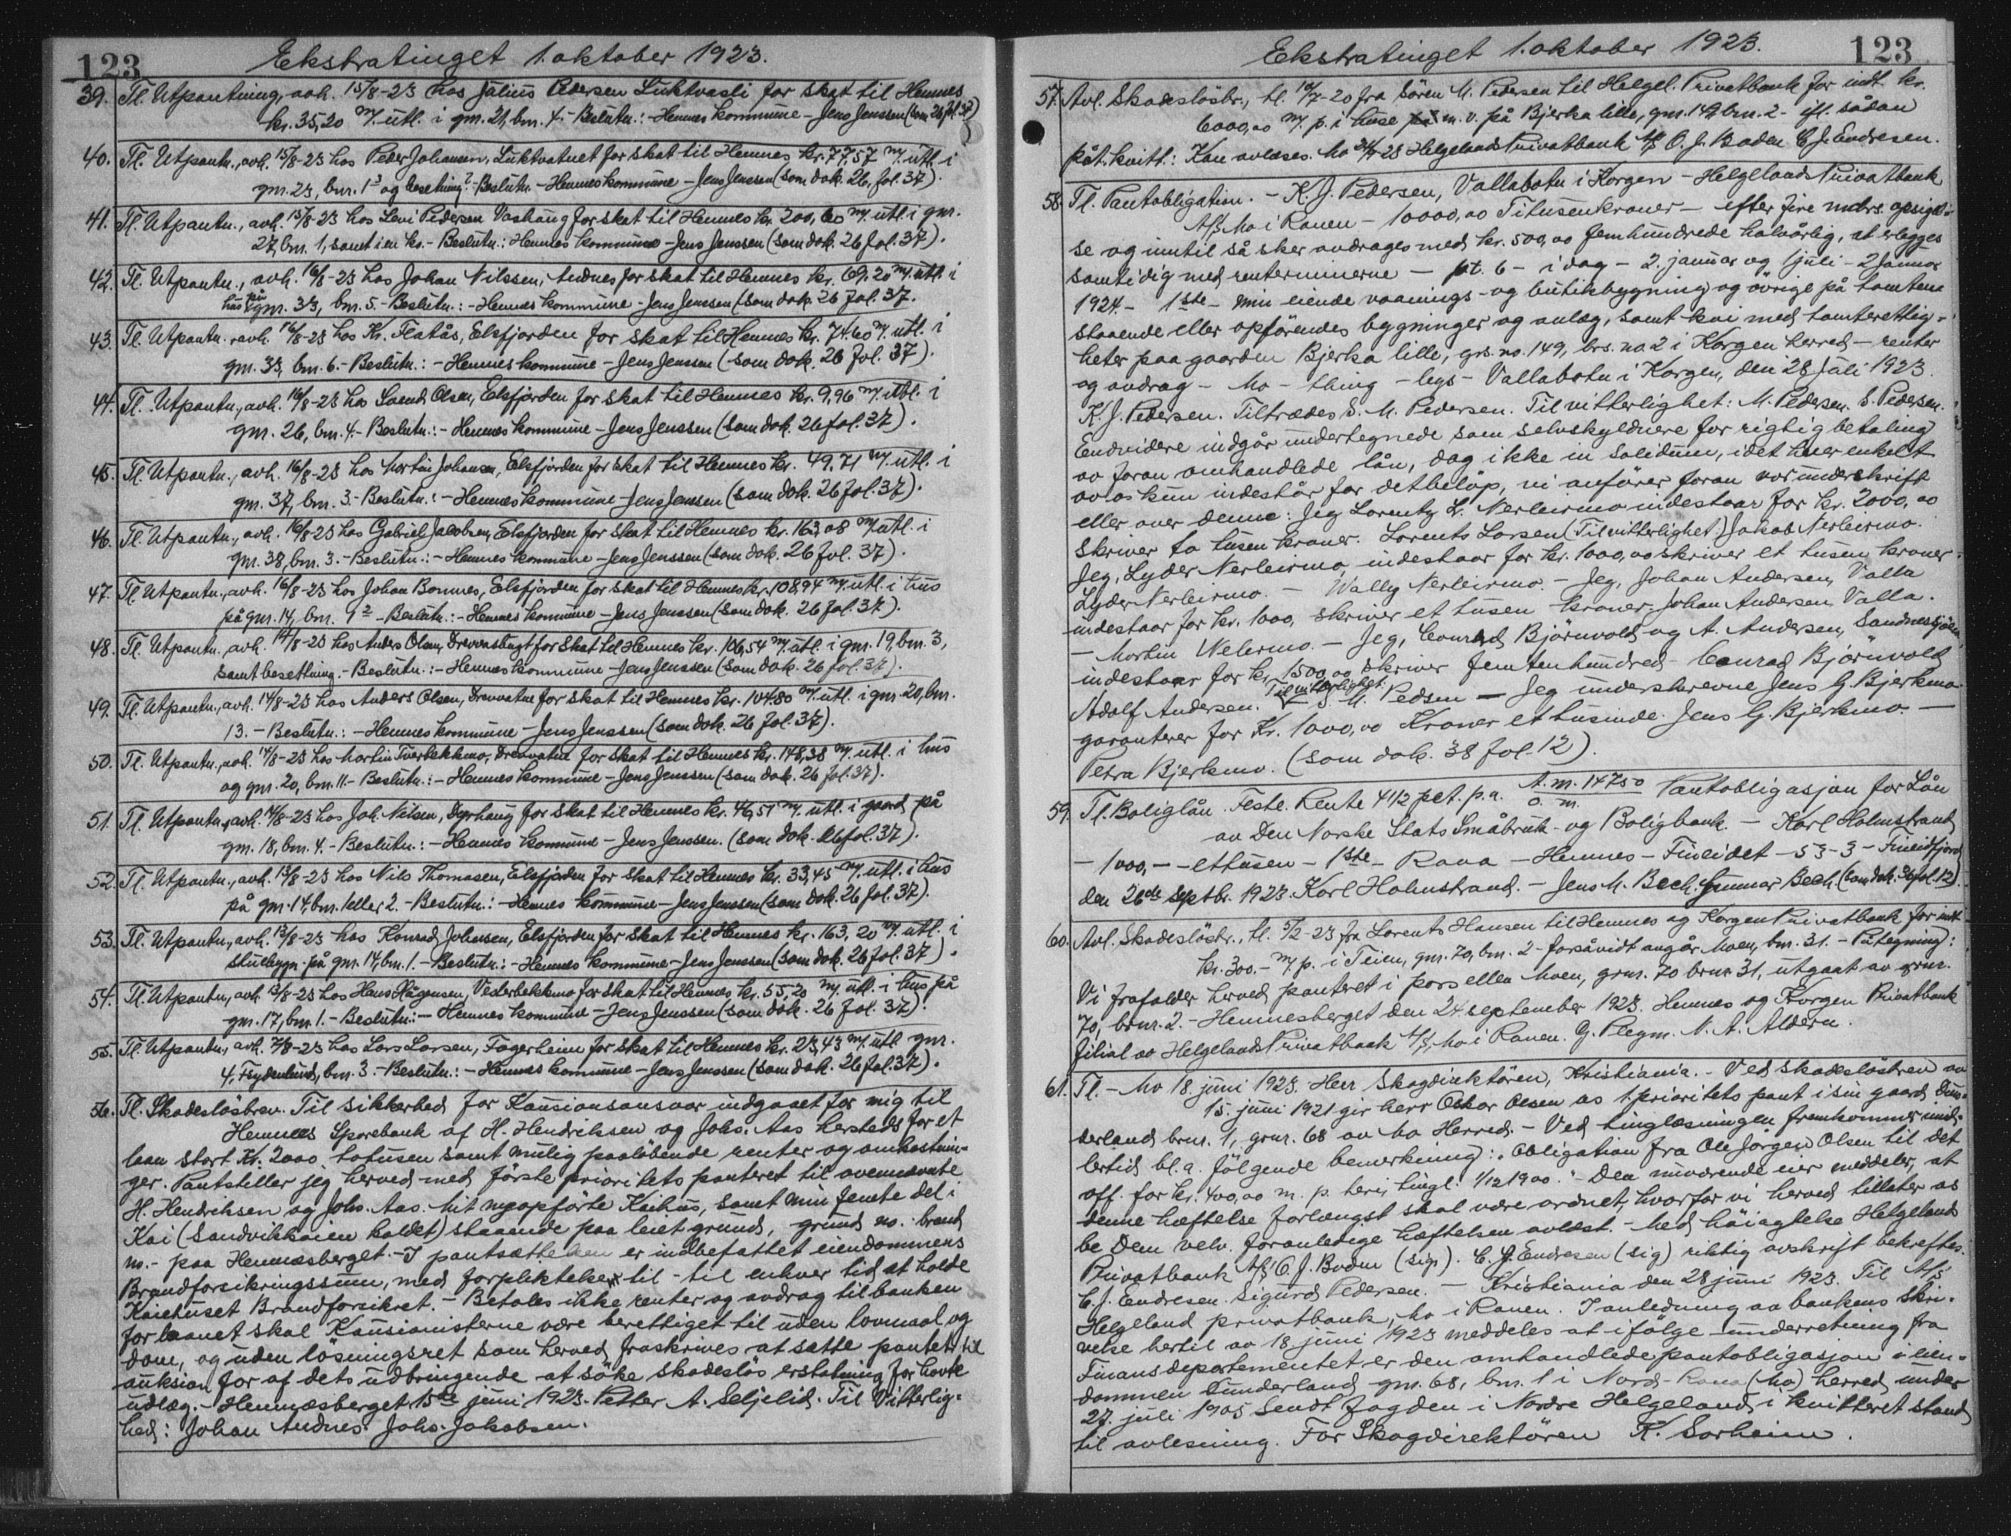 123 Ekstratinget 1. oktober 1923.
39. Tl. Utpantning, avh. 15/8-23 hos Julius Pedersen Luktvasli for skat til Hemnes
kr. 35,20 m/. utl. i gnr. 21, bnr. 4. - Beslutn.: - Hemnes kommune - Jens Jenssen (som dok. 26 fol. 37)
40. Tl. Utpantn., avh. 15/8-23 hos Peder Johansen, Luktvatnet for skat til Hemnes kr. 77,57 m/. utl. i
gnr. 23, bnr. 1 og besetning. - Beslutn. - Hemnes kommune - Jens Jenssen (som dok. 26, fol. 37).
41. Tl. Utpantn., avh. 15/8-23 hos Levi Pedersen Voshaug for skat til Hemnes kr. 200,60 m/. utl. i gnr.
27, bnr. 1, samt i en ko. - Beslutn.: Hemnes kommune - Jens Jenssen (som dok. 26 fol. 37).
42. Tl. Utpantn., avh. 16/8-23 hos Johan Nilssen, Andnes for skat til Hemnes kr. 69,20 m/. utl. i
hus på gnr. 33, bnr. 5. - Beslutn.: - Hemnes kommune - Jens Jenssen (som dok. 26 fol. 37.
43. Tl. Utpantn., avh. 16/8-23 hos Kr. Flatås, Elsfjorden for skat til Hemnes kr. 74.60 m/. utl. i
gnr. 35, bnr. 6. - Beslutn.: - Hemnes kommune - Jens Jenssen (som dok. 26 fol. 37).
44. Tl. Utpantn., avh. 16/8-23 hos Svend Olsen, Elsfjorden for skat til Hemnes kr. 9,96 m/. utl. i
gnr. 26, bnr. 4. - Beslutn.: - Hemnes kommune - Jens Jenssen (som dok. 26 fol. 37).
45. Tl. Utpantn., avh. 16/8-23 hos Martin Johansen, Elsfjorden for skat til Hemnes kr. 49.71 m/. utl. i
gnr. 37, bnr. 3. - Beslutn.: - Hemnes kommune - Jens Jenssen (som dok. 26 fol. 37).
46. Tl. Utpantn., avh. 16/8-23 hos Gabriel Jacobsen, Elsfjorden for skat til Hemnes kr. 163,08 m/. utl. i
gnr. 38, bnr. 3. - Beslutn.: - Hemnes kommune - Jens Jenssen (som dok. 26 fol. 37).
47. Tl. Utpantn., avh. 16/8-23 hos Johan Bonnes, Elsfjorden for skat til Hemnes kr. 108,94 m/. utl. i hus
på gnr. 14, bnr. 9 - Beslutn.: - Hemnes kommune - Jens Jenssen (som dok. 26 fol. 37).
48. Tl. Utpantn., avh. 14/8-23 hos Anders Olsen, for skat til Hemnes kr. 106,54 m/. utl. i gnr. 19, bnr. 3,
samt besettning. - Beslutn.: - Hemnes kommune - Jens Jenssen (som dok. 26 fol. 37).
49. Tl. Utpantn., avh. 14/8-23 hos Anders Olsen, Drevvatne for skat til Hemnes kr. 104.80 m/. utl. i gnr. 20, bnr.
13. - Beslutn.: - Hemnes kommune - Jens Jenssen (som dok. 26 fol. 37).
50. Tl. Utpantn., avh. 14/8-23 hos Martin Tverbekkmo, Drevvatne for skat til Hemnes kr. 148,38 m/. utl. i hus
og gnr. 20, bnr. 11. - Beslutn.: - Hemnes kommune - Jens Jenssen (som dok. 26 fol. 37).
51. Tl. Utpantn., avh. 14/8-23 hos Joh. Nilsen, Dyrhaug for skat til Hemnes kr. 46,51 m/. utl. i gaard på
gnr. 18, bnr. 4. - Beslutn.: - Hemnes kommune - Jens Jenssen. (som dok. 26 fol. 37).
52. Tl. Utpantn., avh. 13/8-23 hos Nils Thomasen, Elsfjorden for skat til Hemnes kr. 33,45 m/. utl. i hus
på gnr. 14, bnr. 1 eller 2. - Beslutn.: - Hemnes kommune - Jens Jenssen (som dok. 26 fol. 37).
53. Tl. Utpantn., avh. 13/8-23 hos Konrad Johansen, Elsfjorden for skat til Hemnes kr. 163,20 m/. utl. i
stuebygn. på gnr. 14, bnr. 1. - Beslutn.: - Hemnes kommune - Jens Jenssen (som dok. 26 fol. 37).
54. Tl. Utpantn., avh. 13/8-23 hos Hans Hågensen, Vesterbekkmo for skat til Hemnes kr. 55,20 m/. utl. i hus på
gnr. 17, bnr. 1. - Beslutn.: - Hemnes kommune - Jens Jenssen (som dok. 26 fol. 37).
55. Tl. Utpantn., avh. 7/8-23 hos Lars Larsen, Fagerheim for skat til Hemnes kr. 23,43 m/. utl. gnr.
4, Frydenlund, bnr. 3. - Beslutn.: - Hemnes kommune - Jens Jenssen (som dok. 26 fol. 37).
56. Tl. Skadesløsbrev. Til sikkerhed for Kausionsansvar indgaaet for mig til
Hemnes Sparebank af H. Hendriksen og Johs. Aas hersteds for et
laan stort Kr. 2000 totusen samt mulig paaløbende renter og omkostnin-
ger. Pantstiller jeg herved med første prioritets panteret til ovennævnte
H. Hendriksen og Johs. Aas. mit nyopførte Kaihus, samt min fjerte del i
Kai (Sandvikkaien kaldet) staaende paa leiet grund, grund no. brand
no. - paa Hemnesberget. - I pantsættelsen er indbefattet eiendommens
Brandforsikringssum, med forpliktelse til - til enhver tid at holde
Kaiehuset Brandforsikret. - Betales ikke renter og avdrag til banken
for laanet skal Kausionisterne være berettiget til uden lovmaal og
dom, og uden løsningsret som herved fraskrives at sætte pantet til
auksion for af dets udbringende at søke skadesløs erstatning for hovte
udlæg. - Hemnesberget 15de juni 1923. Petter A. Seljelid. Til Vitterlig-
hed: Johan Andnes. Johs. Jakobsen.
Ekstratinget 1. oktober 1923. 123
57. Avl. Skadesløsbr., tl. 16/7-20 fra Søren M. Pedersen til Helgel. Privatbank for indt. kr.
6000,00 m/. p. i huse m. v. på Bjerka lille, gnr. 149, bnr. 2 - ifl. sådan
påt. kvitt.: Kan avlæses. Mo 24/9-23 Helgelands Privatbank A/S O. J. Boden E. J. Endresen.
58. Tl. Pantobligation. - K. J. Pedersen, Vallabotn i Korgen - Helgelands Privatbank
A/S Mo i Ranen - 10000,00 Titusenkroner - efter fire mdrs. opsigel-
se og inntil så sker avdrages med kr. 500,00 femhundrede halvårlig, at erlegges
samtidig med renterminerne - pt. 6 - i dag - 2. januar og 1 juli - 2 januar
1924. - 1ste - min eiende vaanings- og butikbygning og øvrige på tomten
staaende eller opførendes bygninger og anlæg, samt kai med tomterettig-
heter paa gaarden Bjerka lille, grs. no. 149, brs. no. 2 i Korgen herred - renter
og avdrag - Mo - thing - lags - Vallabotn i Korgen, den 28 juli 1923.
K. J. Pedersen. Tiltrædes S. M. Pedersen. Til vitterlighet: M. Pedersen. S. Pedersen.
Endvidere indgår undertegnede som selvskyldnere for rigtig betaling
av foran omhandlede lån, dog ikke in solidum, idet hver enkelt
av os kun indestår for det beløp, vi anfører foran vor underskrift
eller over denne: Jeg Lorentz L. Nerleirmo indestaar for kr. 2000,00
skriver to tusen kroner. Lorents Larsen (Til vitterlighet:) Jakob Nerleirmo.
Jeg, Lyder Nerleirmo indestaar for kr. 1000,00 skriver et tusen kroner.
Lyder Nerleirmo. - Wally Nerleirmo. - Jeg, Johan Andersen, Valla
indestaar for kr. 1000, skriver et tusen kroner. Johan Andersen, Valla.
- Martin - Jeg, Conrad Bjørnvold og A. Andersen, Sandnessjøen
indestaar for kr. 1500,00 skriver femtenhundred - Conrad Bjørnvold
Adolf Andersen. Til vitterlighet: S. M. Pedsen - Jeg underskrevne Jens G. Bjerkmo
garanterer for Kr. 1000,00 Kroner et tusinde. Jens G. Bjerkmo. -
Petra Bjerkmo. (som dok. 38 fol. 12).
59. Tl. Boliglån. Feste. Rente 4 1/2 pct. p. a. A. m. 14750 o. m. Pantobligasjon for Lån
av Den Norske Stats Småbruk- og Boligbank. - Karl Holmstrand
- 1000,- - ettusen - 1ste - Rana - Hemnes - Finneidet - 53 - 3 - Finneidfjord
den 26de septbr. 1923. Karl Holmstrand. - Jens M. Bech. Gunnar Bech. (som dok. 36 fol. 12)
60. Avl. Skadesløsbr., tl. 5/2-23 fra Lorents Hansen til Hemnes og Korgen Privatbank for indt.
kr. 300. - m/. p. i Teien, gnr. 70, bnr. 2 - forsåvidt angår Moen, bnr. 31. - Påtegning:
Vi frafalder herved panteret i parsellen Moen, grnr. 70 brnr. 31, utgaat av grnr.
70, brnr. 2. - Hemnesberget den 24 september 1923. Hemnes og Korgen Privatbank
filial av Helgelands Privatbank A/S, Mo i Ranen. G. Plegm. N. A. Aldern.
61. Tl. - Mo 18 juni 1923. Herr Skogdirektøren, Kristiania. - Ved skadesløsbrev av
15. juni 1921 gir herr Oskar Olsen os 1. prioritets pant i sin gaard Dun-
derland, brnr. 1, grnr. 68 av Mo Herred. - Ved tinglæsningen fremkommer imid-
lertid bl. a. følgende bemerkning: "Obligation fra Ole Jørgen Olsen til det
off. for kr. 400,00 m. p. heri, tingl. 1/12 1900." Den nuværende eier meddeler, at
denne hæftelse forlængst skal være ordnet, hvorfor vi herved tillater os
be Dem velv. foranledige hæftelsen avlæst. - Med høiagtelse Helgelands
Privatbank A/S O. J. Boden (sig). E. J. Endresen (sig) riktig avskrift bekreftes.
E. J. Endresen. Sigurd Pedersen. - Kristiania den 28 juni 1923. Til A/S
Helgeland privatbank, Mo i Ranen. I anledning av bankens skri-
velse hertil av 18 juni 1923 meddeles at ifølge underretning fra
Finansdepartementet er den omhandlede pantobligasjon i eien-
dommen Dunderland gnr. 68, bnr. 1 i Nord-Rana (Mo) herred under
27. juli 1905 sendt fogden i Nordre Helgeland i kvitteret stand
til avlesning. For Skogdirektøren K. Sørheim.